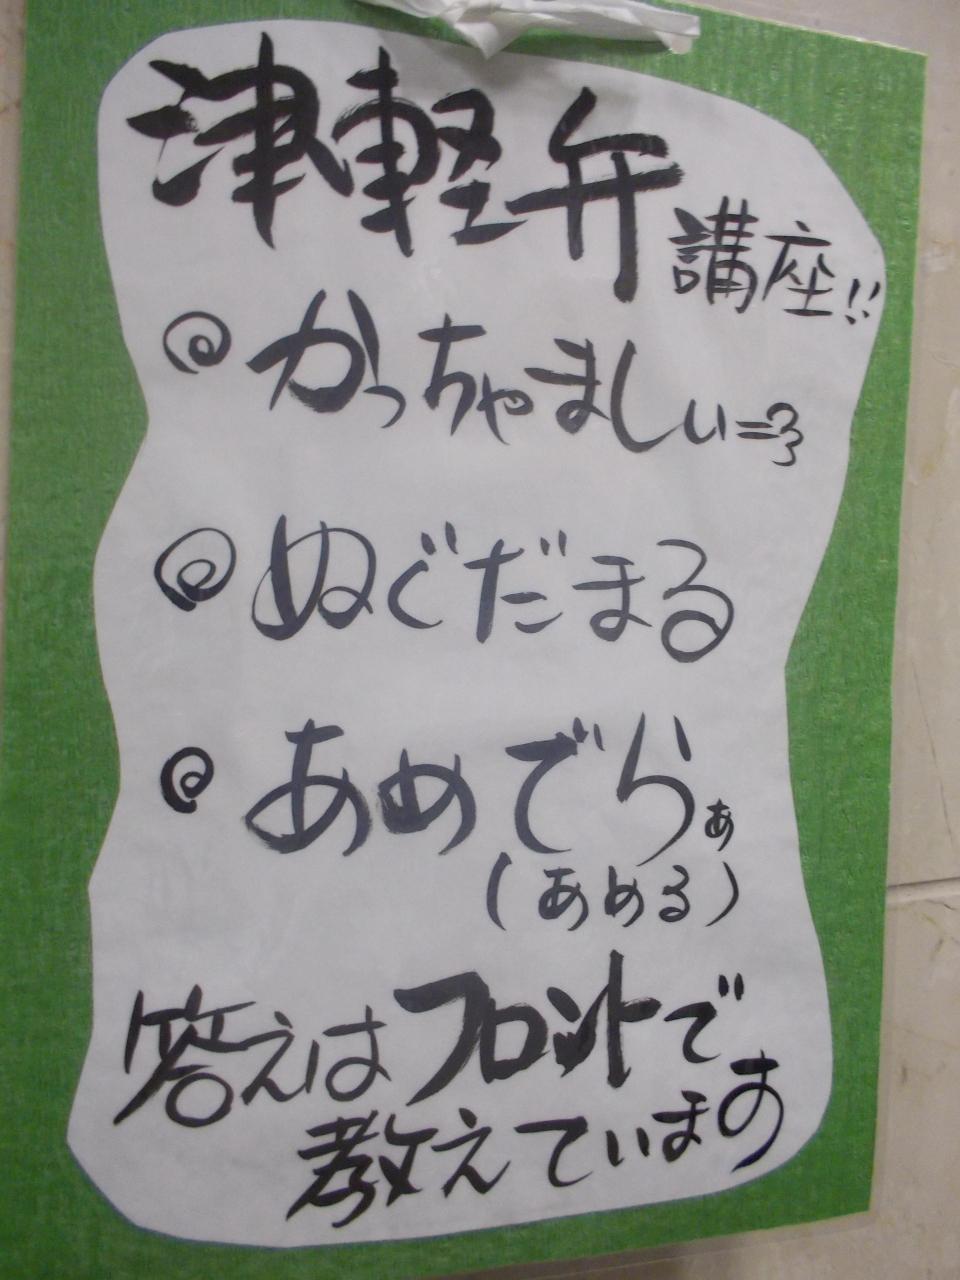 津軽弁講座!!
@かっちゃましぃ=3
@ぬぐだまる
@あめでらぁ
(あめる)
答えはフロントで
教えています